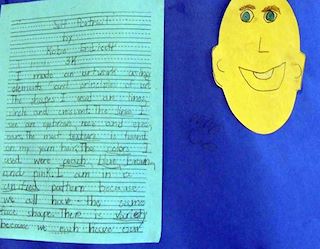 Self Portrait
by
3K
I made an artwork using
elements and principles of art.
The shapes I used are lines,
circle and crescent. The lines I
are on eyebrow, nose and
ears. The most texture is found
on my yarn hair. The colors I
used were peach, blue, brown,
and pink. I am in a
unified pattern because
we all have the same
face shape. There is variety
because we each have our